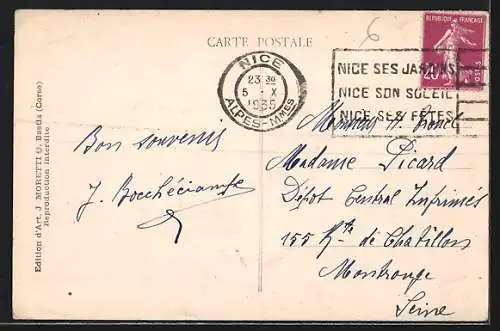 6
CARTE POSTALE
RÉPUBLIQUE FRANÇAISE
20c
POSTES
NICE
23 30
5 - X
1935
ALPES-MMES
NICE SES JARDINS
NICE SON SOLEIL
NICE SES FÊTES
Edition d'Art. J. MORETTI Bastia (Corse)
Reproduction interdite
Bon souvenir
J.
Monsieur et
Madame Picard
Dépôt Central Imprimés
155 Rte de Chatillon
Montrouge
Seine